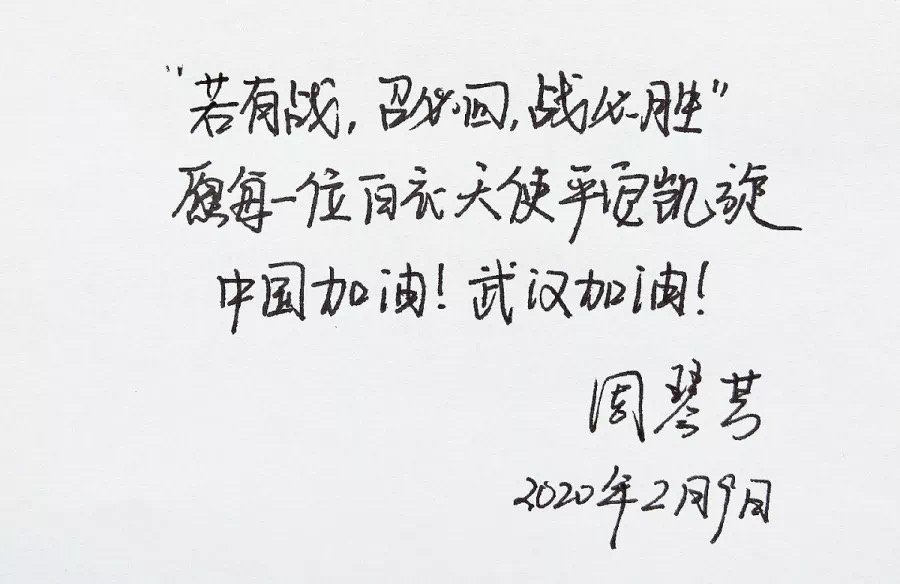 “若有战，召必回，战必胜”
愿每一位白衣天使平顺凯旋
中国加油！武汉加油！
周琴
2020年2月9日